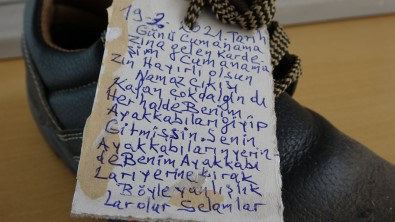 19-2-2021 Tarih
Günü Cumanama
Zina gelen Karde
şim Cumanama
Zın Hayırlı olsun
Namaz Cıkışı
Kafan cokdalgındı
Her halde Benim
Ayakkabıları giyip
Gitmişsin Senin
Ayakkabıları yerin
de Benim Ayakkabı
Ları yerine bırak
Böyle yanlışlık
Lar olur Selamlar